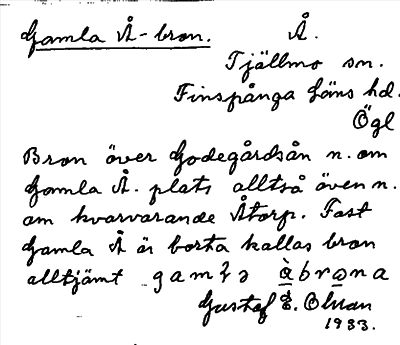 Gamla Å-bron. Å.
Tjällmo sn.
Finspånga läns hd.
Ögl
Bron över Godegårdsån n. om
Gamla Å. plats alltså även n.
om kvarvarande Åtorp. Fast
Gamla Å är borta kallas bron
alltjämt
Gustaf E.
1933.